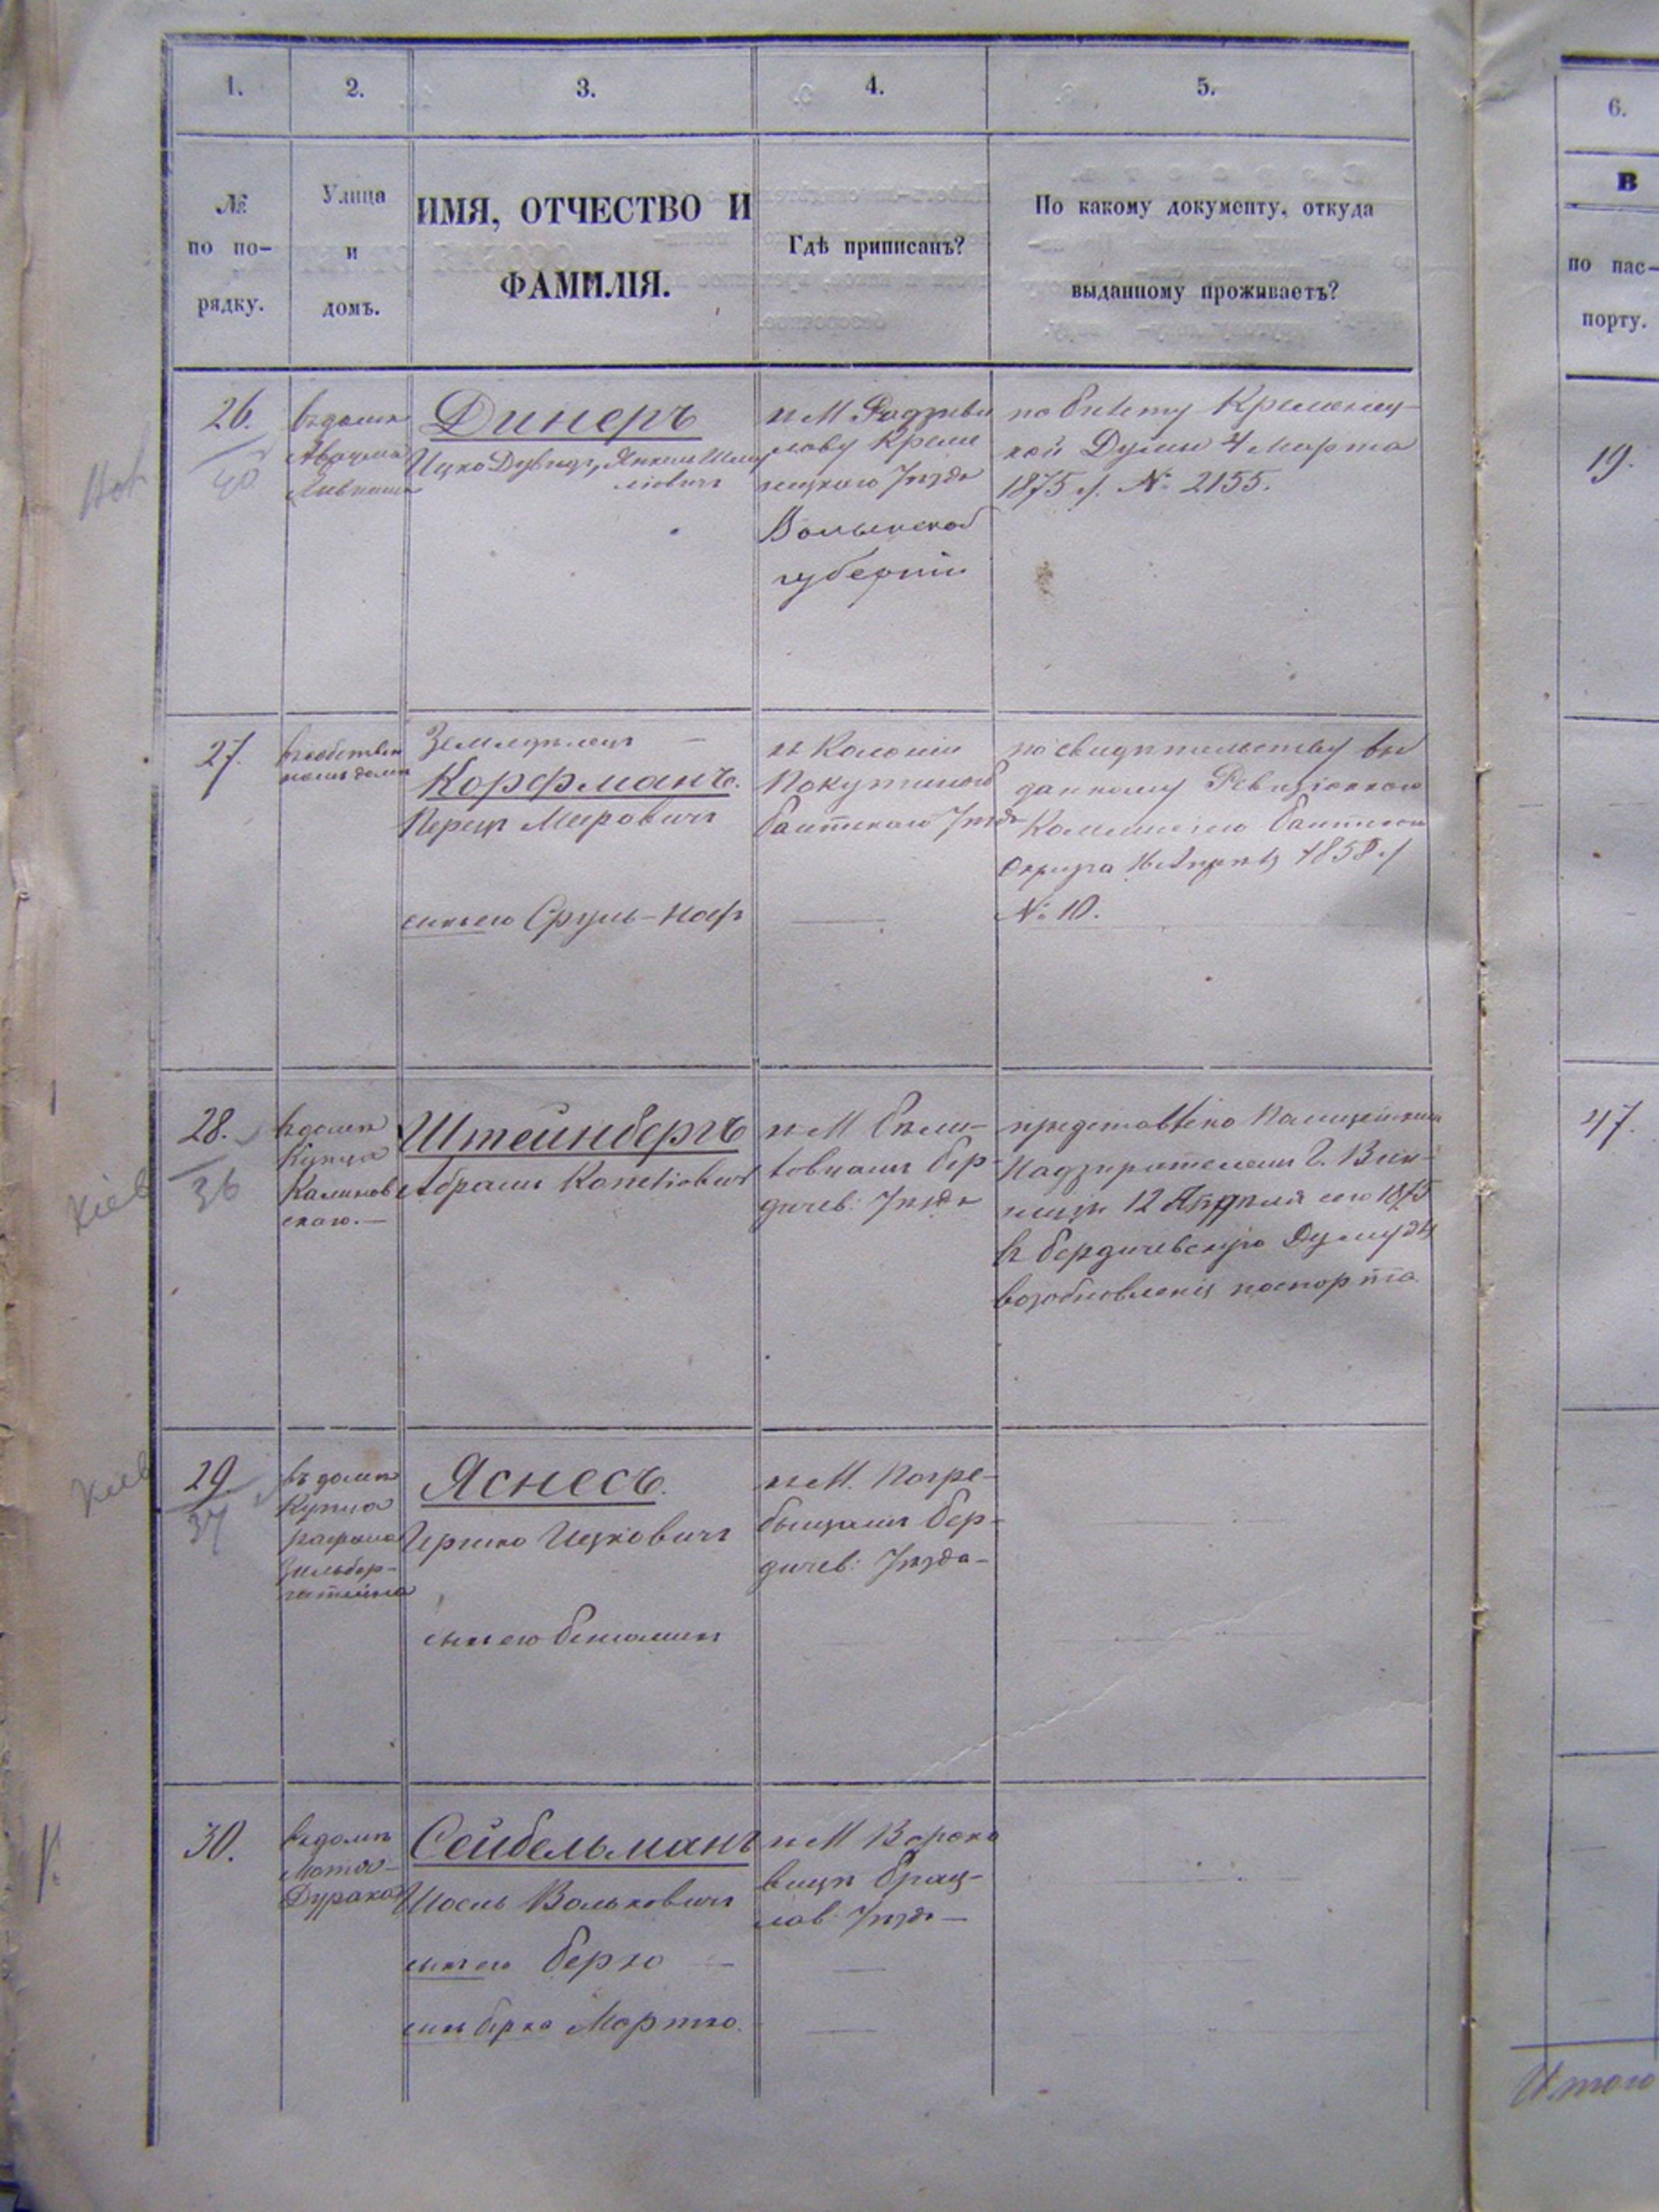 1.
2.
3.
4.
5.
6.
№
по по-
рядку.
Улица
и
домъ.
ИМЯ, ОТЧЕСТВО И
ФАМИЛІЯ.
Гдѣ приписанъ?
По какому документу, откуда
выданному проживаетъ?
В
по пас-
порту.
26.
40
въ домѣ
Динеръ
Ицко Дувидъ, Янкель Шму
левичъ
къ М Радзиви
лову Креме
нецкого Уѣзда
Волынской
губерніи
по билету Кременец-
кой Думы 4 Марта
1875 г. № 2155.
19.
27.
въ собствен
номъ домѣ
Земледѣлецъ
Корфманъ.
Перецъ Меировичъ
сынъ его Сруль-Иосъ
къ Колоніи
Покутиной
Балтского Уѣзда
по свидѣтельству вы
данному Ревизіонною
Коммисіею Балтского
Округа 16 Апрѣля 1858 г
№ 10.
Кіев
28.
36
въ домѣ
Купца
Калинов
скаго.
Штейнбергъ
Абрамъ Копелiовичъ
къ М Спи-
човцамъ Бер-
дичев: Уѣзда
представлено Полицейским
Надзирателемъ Г. Вин-
ницы 12 Апрѣля сего 1875
въ Бердичевскую Думу для
возобновленія паспорта
47.
Кіев
29.
37
въ домѣ
Купца
Рафаила
Зильбер-
штейна
Яснесъ.
Гершко Ицковичъ
сынъ его Беньоминъ
къ М. Погре-
бищамъ Бер-
дичев: Уѣзда
30.
въ домѣ
Мотя
Дурака
Сейбельманъ
Иосль Вольковичъ
сынъ его Берко
сынъ Берка Мортко.
къ М Вороно
вицѣ Брац-
лав: Уѣзда
Итого